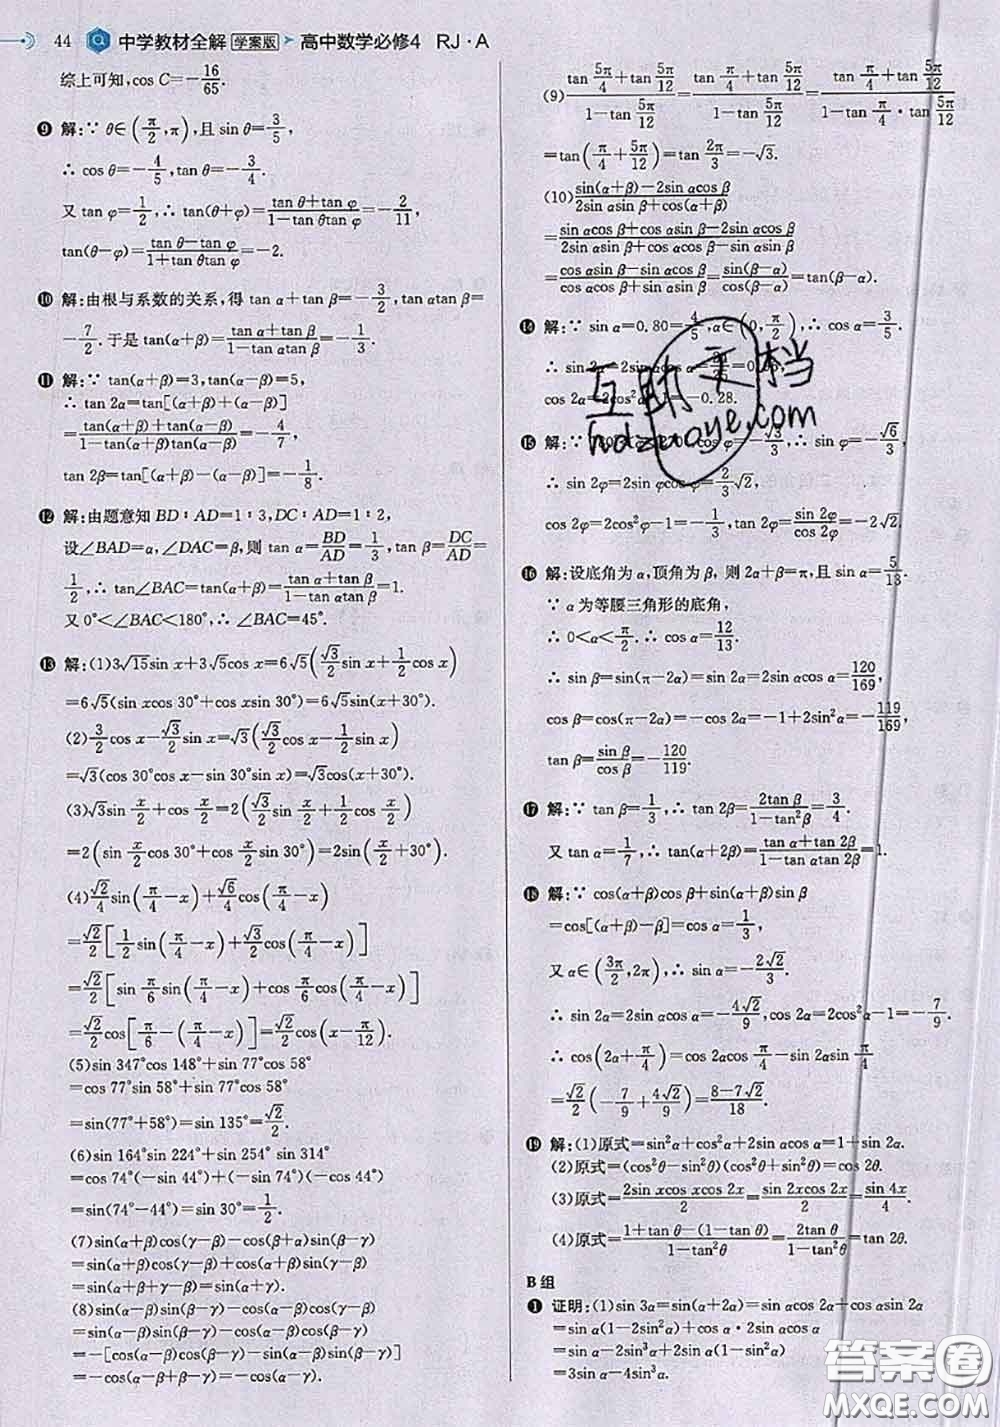 44 中学教材全解 学案版 高中数学必修4 RJ·A
综上可知,cos C=-16/65.
❾ 解:∵ θ∈(π/2,π),且 sin θ=3/5,
∴ cos θ=-4/5,tan θ=-3/4.
又 tan φ=1/2,∴ tan(θ+φ)=(tan θ+tan φ)/(1-tan θtan φ)=-2/11,
tan(θ-φ)=(tan θ-tan φ)/(1+tan θtan φ)=-2.
❿ 解:由根与系数的关系,得 tan α+tan β=-3/2,tan αtan β=
-7/2.于是 tan(α+β)=(tan α+tan β)/(1-tan αtan β)=-1/3.
⓫ 解:∵ tan(α+β)=3,tan(α-β)=5,
∴ tan 2α=tan[(α+β)+(α-β)]
=(tan(α+β)+tan(α-β))/(1-tan(α+β)tan(α-β))=-4/7,
tan 2β=tan[(α+β)-(α-β)]=-1/8.
⓬ 解:由题意知 BD∶AD=1∶3,DC∶AD=1∶2,
设∠BAD=α,∠DAC=β,则 tan α=BD/AD=1/3,tan β=DC/AD=
1/2,∴ tan∠BAC=tan(α+β)=(tan α+tan β)/(1-tan αtan β)=1.
又 0°<∠BAC<180°,∴ ∠BAC=45°.
⓭ 解:(1)3√15sin x+3√5cos x=6√5(√3/2sin x+1/2cos x)
=6√5(cos 30°sin x+cos xsin 30°)=6√5sin(x+30°).
(2)3/2cos x-√3/2sin x=√3(√3/2cos x-1/2sin x)
=√3(cos 30°cos x-sin 30°sin x)=√3cos(x+30°).
(3)√3sin x/2+cos x/2=2(√3/2sin x/2+1/2cos x/2)
=2(sin x/2cos 30°+cos x/2sin 30°)=2sin(x/2+30°).
(4)√2/4sin(π/4-x)+√6/4cos(π/4-x)
=√2/2[1/2sin(π/4-x)+√3/2cos(π/4-x)]
=√2/2[sin π/6sin(π/4-x)+cos π/6cos(π/4-x)]
=√2/2cos[π/6-(π/4-x)]=√2/2cos(x-π/12).
(5)sin 347°cos 148°+sin 77°cos 58°
=cos 77°sin 58°+sin 77°cos 58°
=sin(77°+58°)=sin 135°=√2/2.
(6)sin 164°sin 224°+sin 254° sin 314°
=cos 74°(-sin 44°)+sin 74°cos 44°
=sin(74°-44°)=sin 30°=1/2.
(7)sin(α+β)cos(γ-β)-cos(β+α)sin(β-γ)
=sin(α+β)cos(β-γ)-cos(α+β)sin(β-γ)
=sin(α+β-β+γ)=sin(α+γ).
(8)sin(α-β)sin(β-γ)-cos(α-β)cos(γ-β)
=sin(α-β)sin(β-γ)-cos(α-β)cos(β-γ)
=-[cos(α-β)cos(β-γ)-sin(α-β)sin(β-γ)]
=-cos(α-β+β-γ)=-cos(α-γ).
(9)(tan 5π/4+tan 5π/12)/(1-tan 5π/12)=(tan π/4+tan 5π/12)/(1-tan 5π/12)=(tan π/4+tan 5π/12)/(1-tan π/4·tan 5π/12)
=tan(π/4+5π/12)=tan 2π/3=-√3.
(10)(sin(α+β)-2sin αcos β)/(2sin αsin β+cos(α+β))
=(sin αcos β+cos αsin β-2sin αcos β)/(2sin αsin β+cos αcos β-sin αsin β)
=(cos αsin β-sin αcos β)/(cos αcos β+sin αsin β)=sin(β-α)/cos(β-α)=tan(β-α).
⓮ 解:∵ sin α=0.80=4/5,α∈(0,π/2),∴ cos α=3/5.
∴ sin 2α=2sin αcos α=24/25=0.96,
cos 2α=2cos²α-1=-0.28.
⓯ 解:∵ 180°<φ<270°,cos φ=-√3/3,∴ sin φ=-√6/3.
∴ sin 2φ=2sin φcos φ=2/3√2,
cos 2φ=2cos²φ-1=-1/3,tan 2φ=sin 2φ/cos 2φ=-2√2.
⓰ 解:设底角为α,顶角为β,则 2α+β=π,且 sin α=5/13.
∵ α为等腰三角形的底角,
∴ 0<α<π/2.∴ cos α=12/13.
∴ sin β=sin(π-2α)=sin 2α=2sin αcos α=120/169,
cos β=cos(π-2α)=-cos 2α=-1+2sin²α=-119/169,
tan β=sin β/cos β=-120/119.
⓱ 解:∵ tan β=1/3,∴ tan 2β=2tan β/(1-tan²β)=3/4.
又 tan α=1/7,∴ tan(α+2β)=(tan α+tan 2β)/(1-tan αtan 2β)=1.
⓲ 解:∵ cos(α+β)cos β+sin(α+β)sin β
=cos[(α+β)-β]=cos α=1/3,
又 α∈(3π/2,2π),∴ sin α=-2√2/3.
∴ sin 2α=2sin αcos α=-4√2/9,cos 2α=2cos²α-1=-7/9.
∴ cos(2α+π/4)=cos 2αcos π/4-sin 2αsin π/4
=√2/2(-7/9+4√2/9)=(8-7√2)/18.
⓳ 解:(1)原式=sin²α+cos²α+2sin αcos α=1+sin 2α.
(2)原式=(cos²θ-sin²θ)(cos²θ+sin²θ)=cos 2θ.
(3)原式=2sin xcos xcos 2x/2=sin 2xcos 2x/2=sin 4x/4.
(4)原式=(1+tan θ-(1-tan θ))/(1-tan²θ)=2tan θ/(1-tan²θ)=tan 2θ.
B 组
❶ 证明:(1)sin 3α=sin(α+2α)=sin αcos 2α+cos αsin 2α
=sin α(1-2sin²α)+cos α·2sin αcos α
=sin α-2sin³α+2sin α(1-sin²α)
=3sin α-4sin³α.
互助文档
hdzuoye.com
答案圈
MXQE.COM